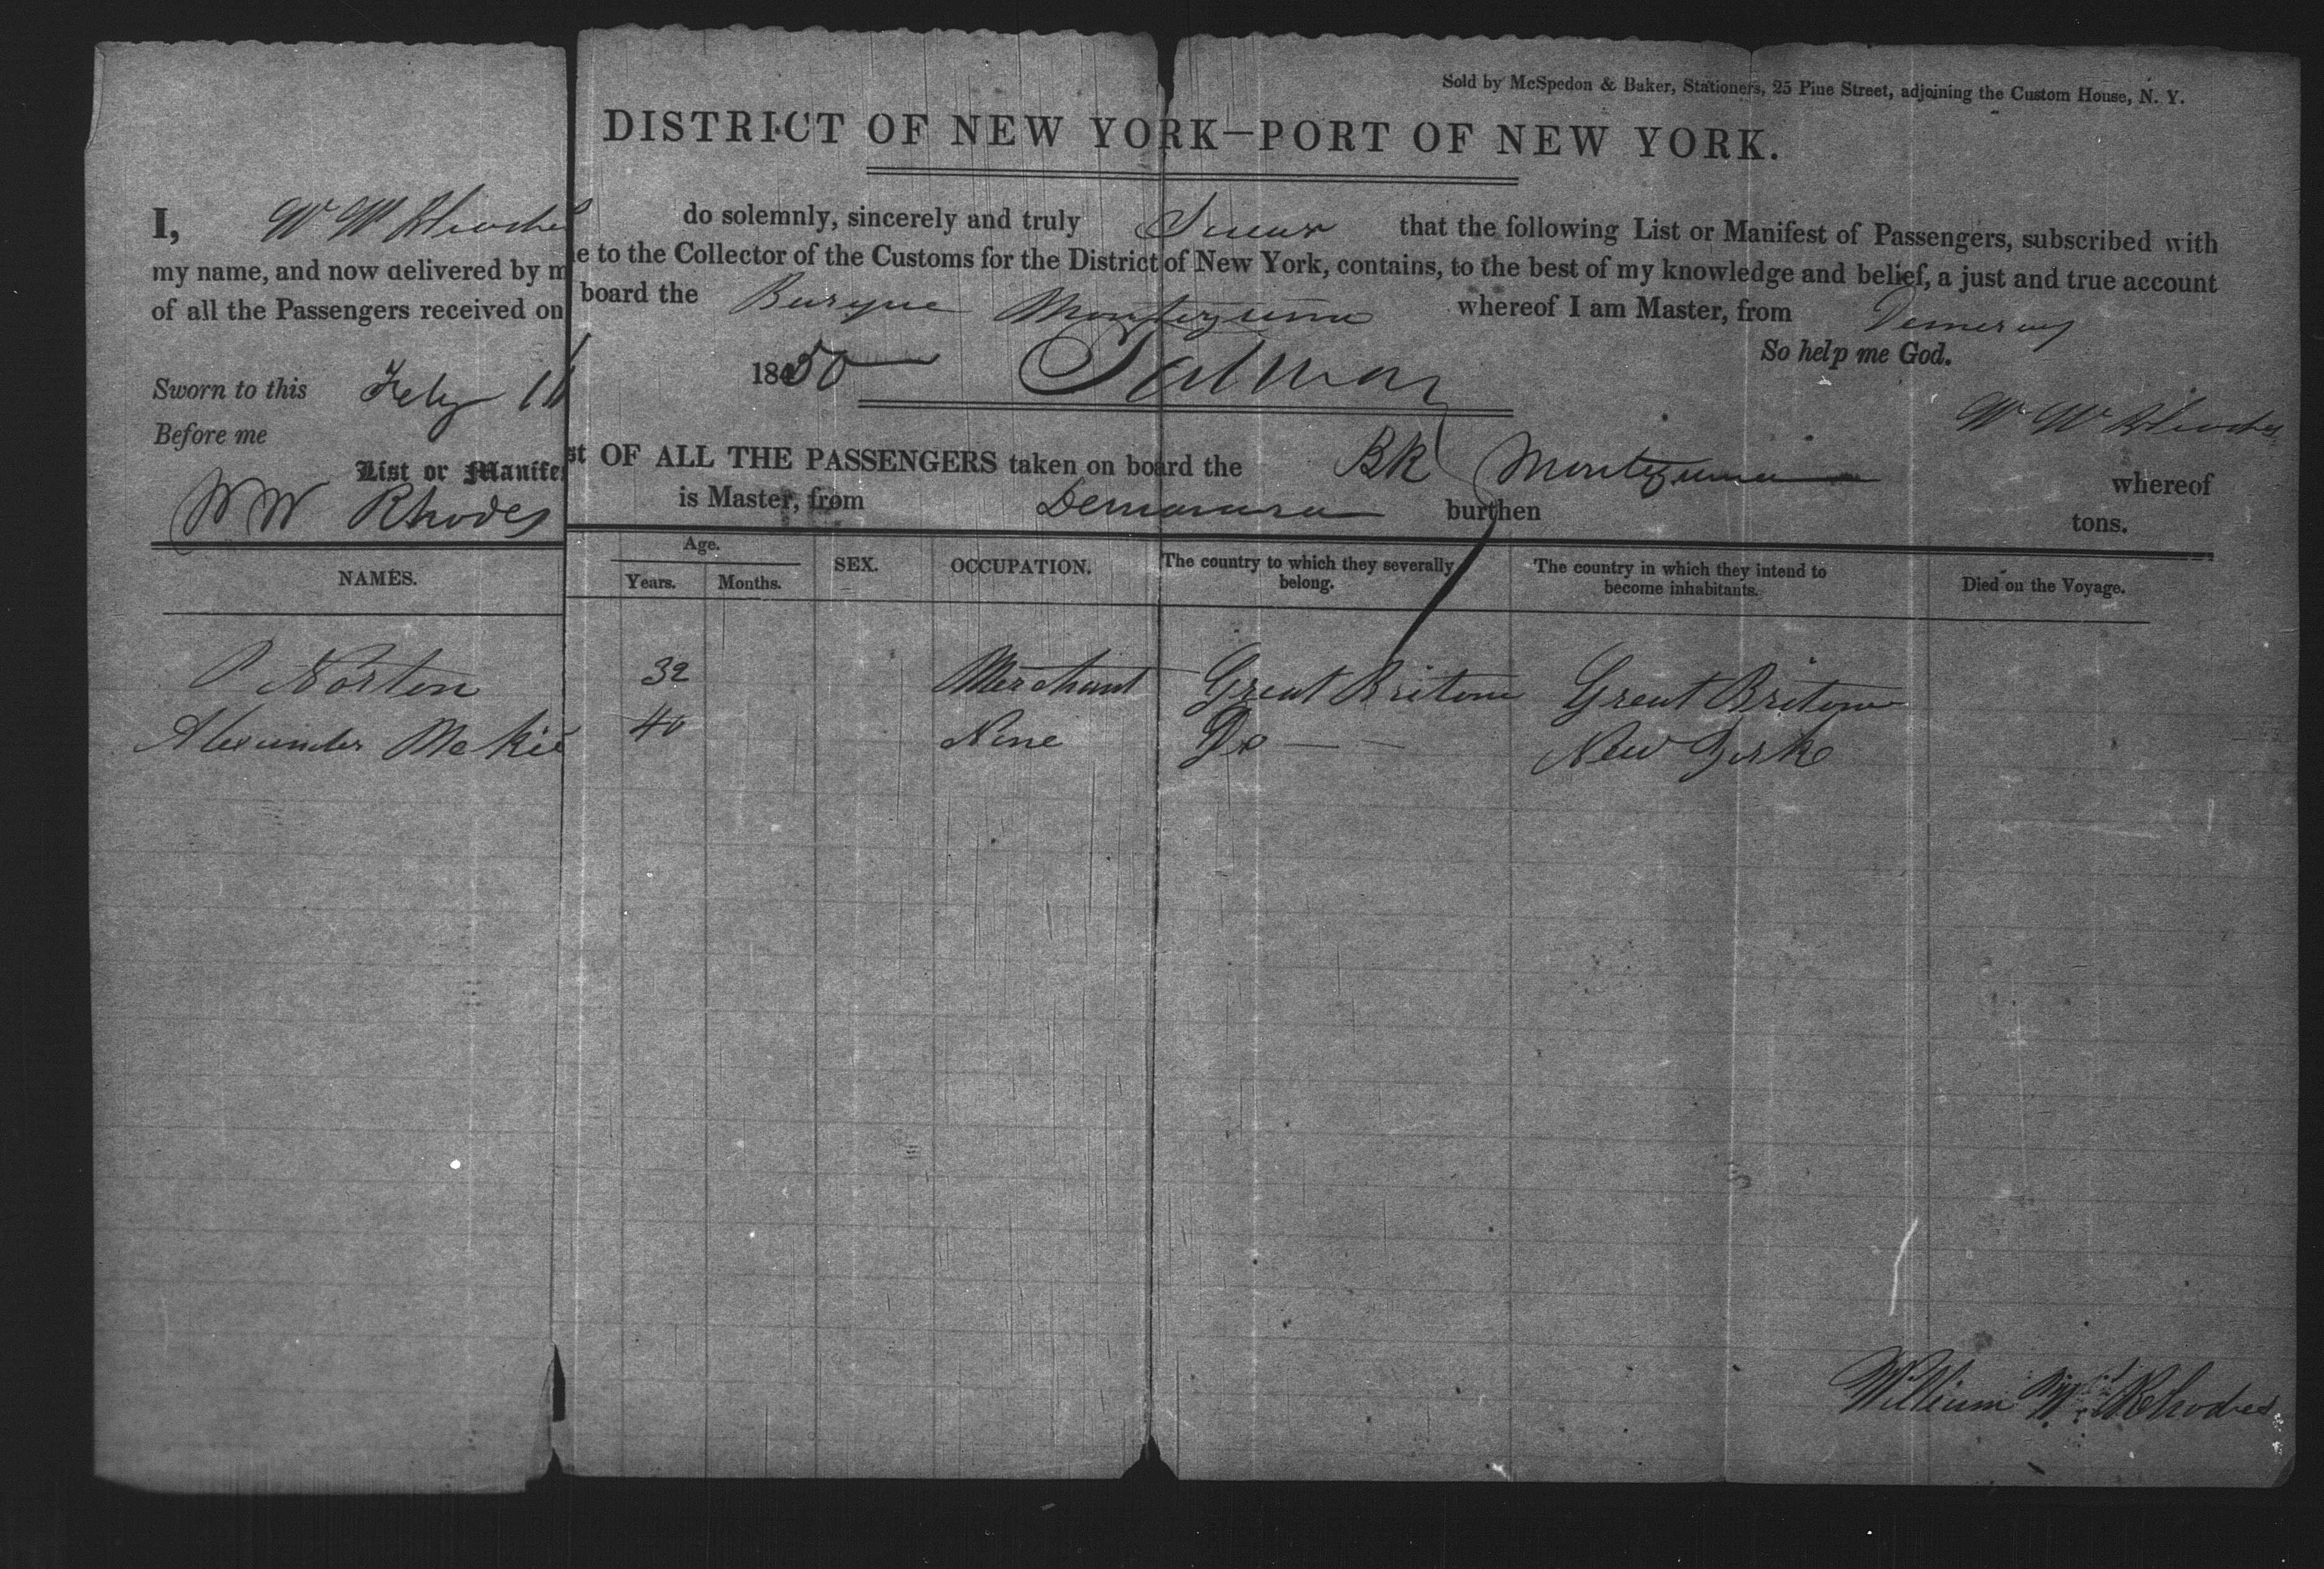 Sold by McSpedon & Baker, Stationers, 25 Pine Street, adjoining the Custom House, N. Y.
DISTRICT OF NEW YORK—PORT OF NEW YORK.
I, W W Rhodes do solemnly, sincerely and truly Swear that the following List or Manifest of Passengers, subscribed with
my name, and now delivered by me to the Collector of the Customs for the District of New York, contains, to the best of my knowledge and belief, a just and true account
of all the Passengers received on board the Barque Montezuma whereof I am Master, from Demerary
So help me God.
Sworn to this Feby 11 1850
Before me W W Rhodes
List or Manifest OF ALL THE PASSENGERS taken on board the BK Montezuma whereof
W W Rhodes is Master, from Demarara burthen tons.
NAMES. Age. Years. Months. SEX. OCCUPATION. The country to which they severally belong. The country in which they intend to become inhabitants. Died on the Voyage.
P Norton 32 Merchant Great Britain Great Britain
Alexander McKie 40 None Do New York
William W Rhodes